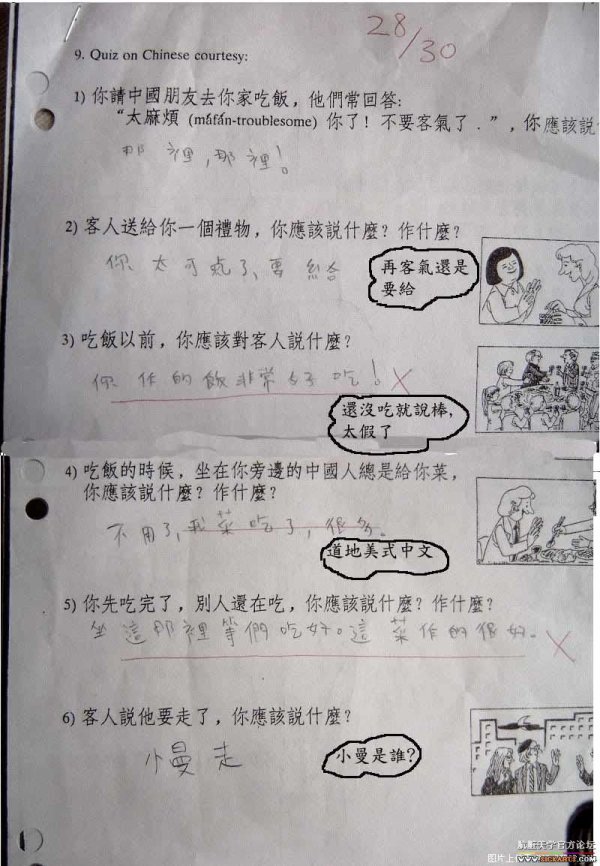 28/30
9. Quiz on Chinese courtesy:
1) 你請中國朋友去你家吃飯，他們常回答:
“太麻煩 (máfán-troublesome) 你了！不要客氣了．”，你應該說
那裡,那裡!
2) 客人送給你一個禮物，你應該說什麼？作什麼？
你太可気了、要給
再客氣還是
要給
3) 吃飯以前，你應該對客人說什麼？
你作的飯非常好吃!
還沒吃就說棒，
太假了
4) 吃飯的時候，坐在你旁邊的中國人總是給你菜，
你應該說什麼？作什麼？
不用了,我菜吃了,很多。
道地美式中文
5) 你先吃完了，別人還在吃，你應該說什麼？作什麼？
坐這那裡等們吃好。這菜作的很好。
6) 客人說他要走了，你應該說什麼？
小曼走
小曼是誰?
航航天学官方论坛
图片上